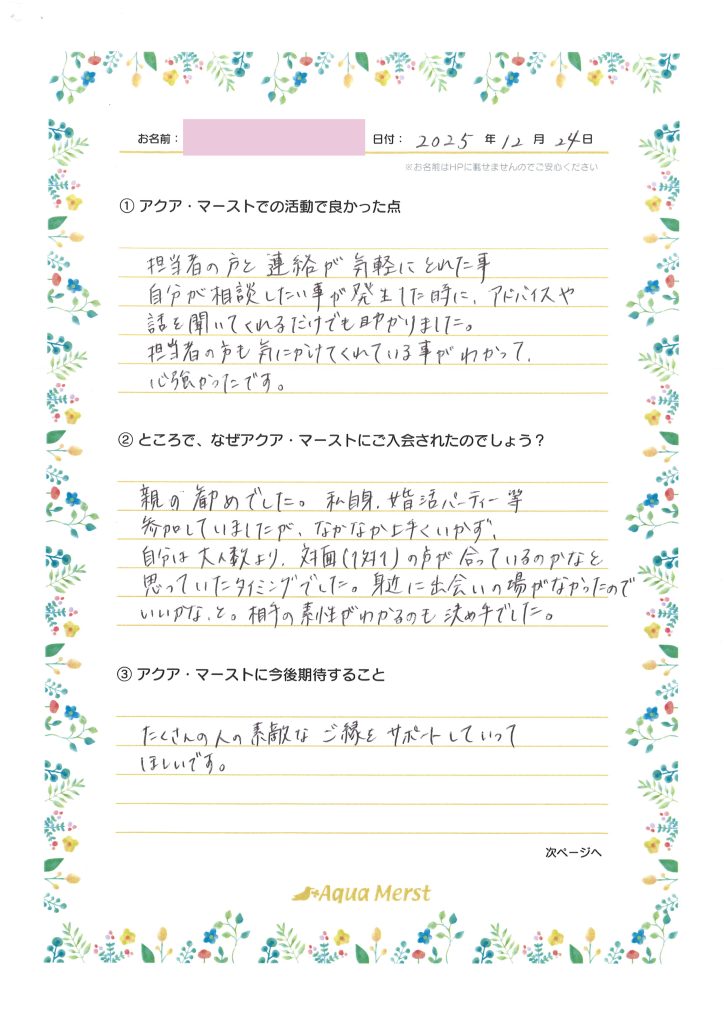 お名前： 日付： 2025 年 12 月 24 日
※お名前はHPに載せませんのでご安心ください
① アクア・マーストでの活動で良かった点
担当者の方と連絡が気軽にとれた事
自分が相談したい事が発生した時に、アドバイスや
話を聞いてくれるだけでも助かりました。
担当者の方も気にかけてくれている事がわかって、
心強かったです。
② ところで、なぜアクア・マーストにご入会されたのでしょう？
親の勧めでした。私自身、婚活パーティー等
参加していましたが、なかなか上手くいかず、
自分は大人数より、対面(1対1)の方が合っているのかなと
思っていたタイミングでした。身近に出会いの場がなかったので
いいかな、と。相手の素性がわかるのも決め手でした。
③ アクア・マーストに今後期待すること
たくさんの人の素敵なご縁をサポートしていって
ほしいです。
次ページへ
Aqua Merst